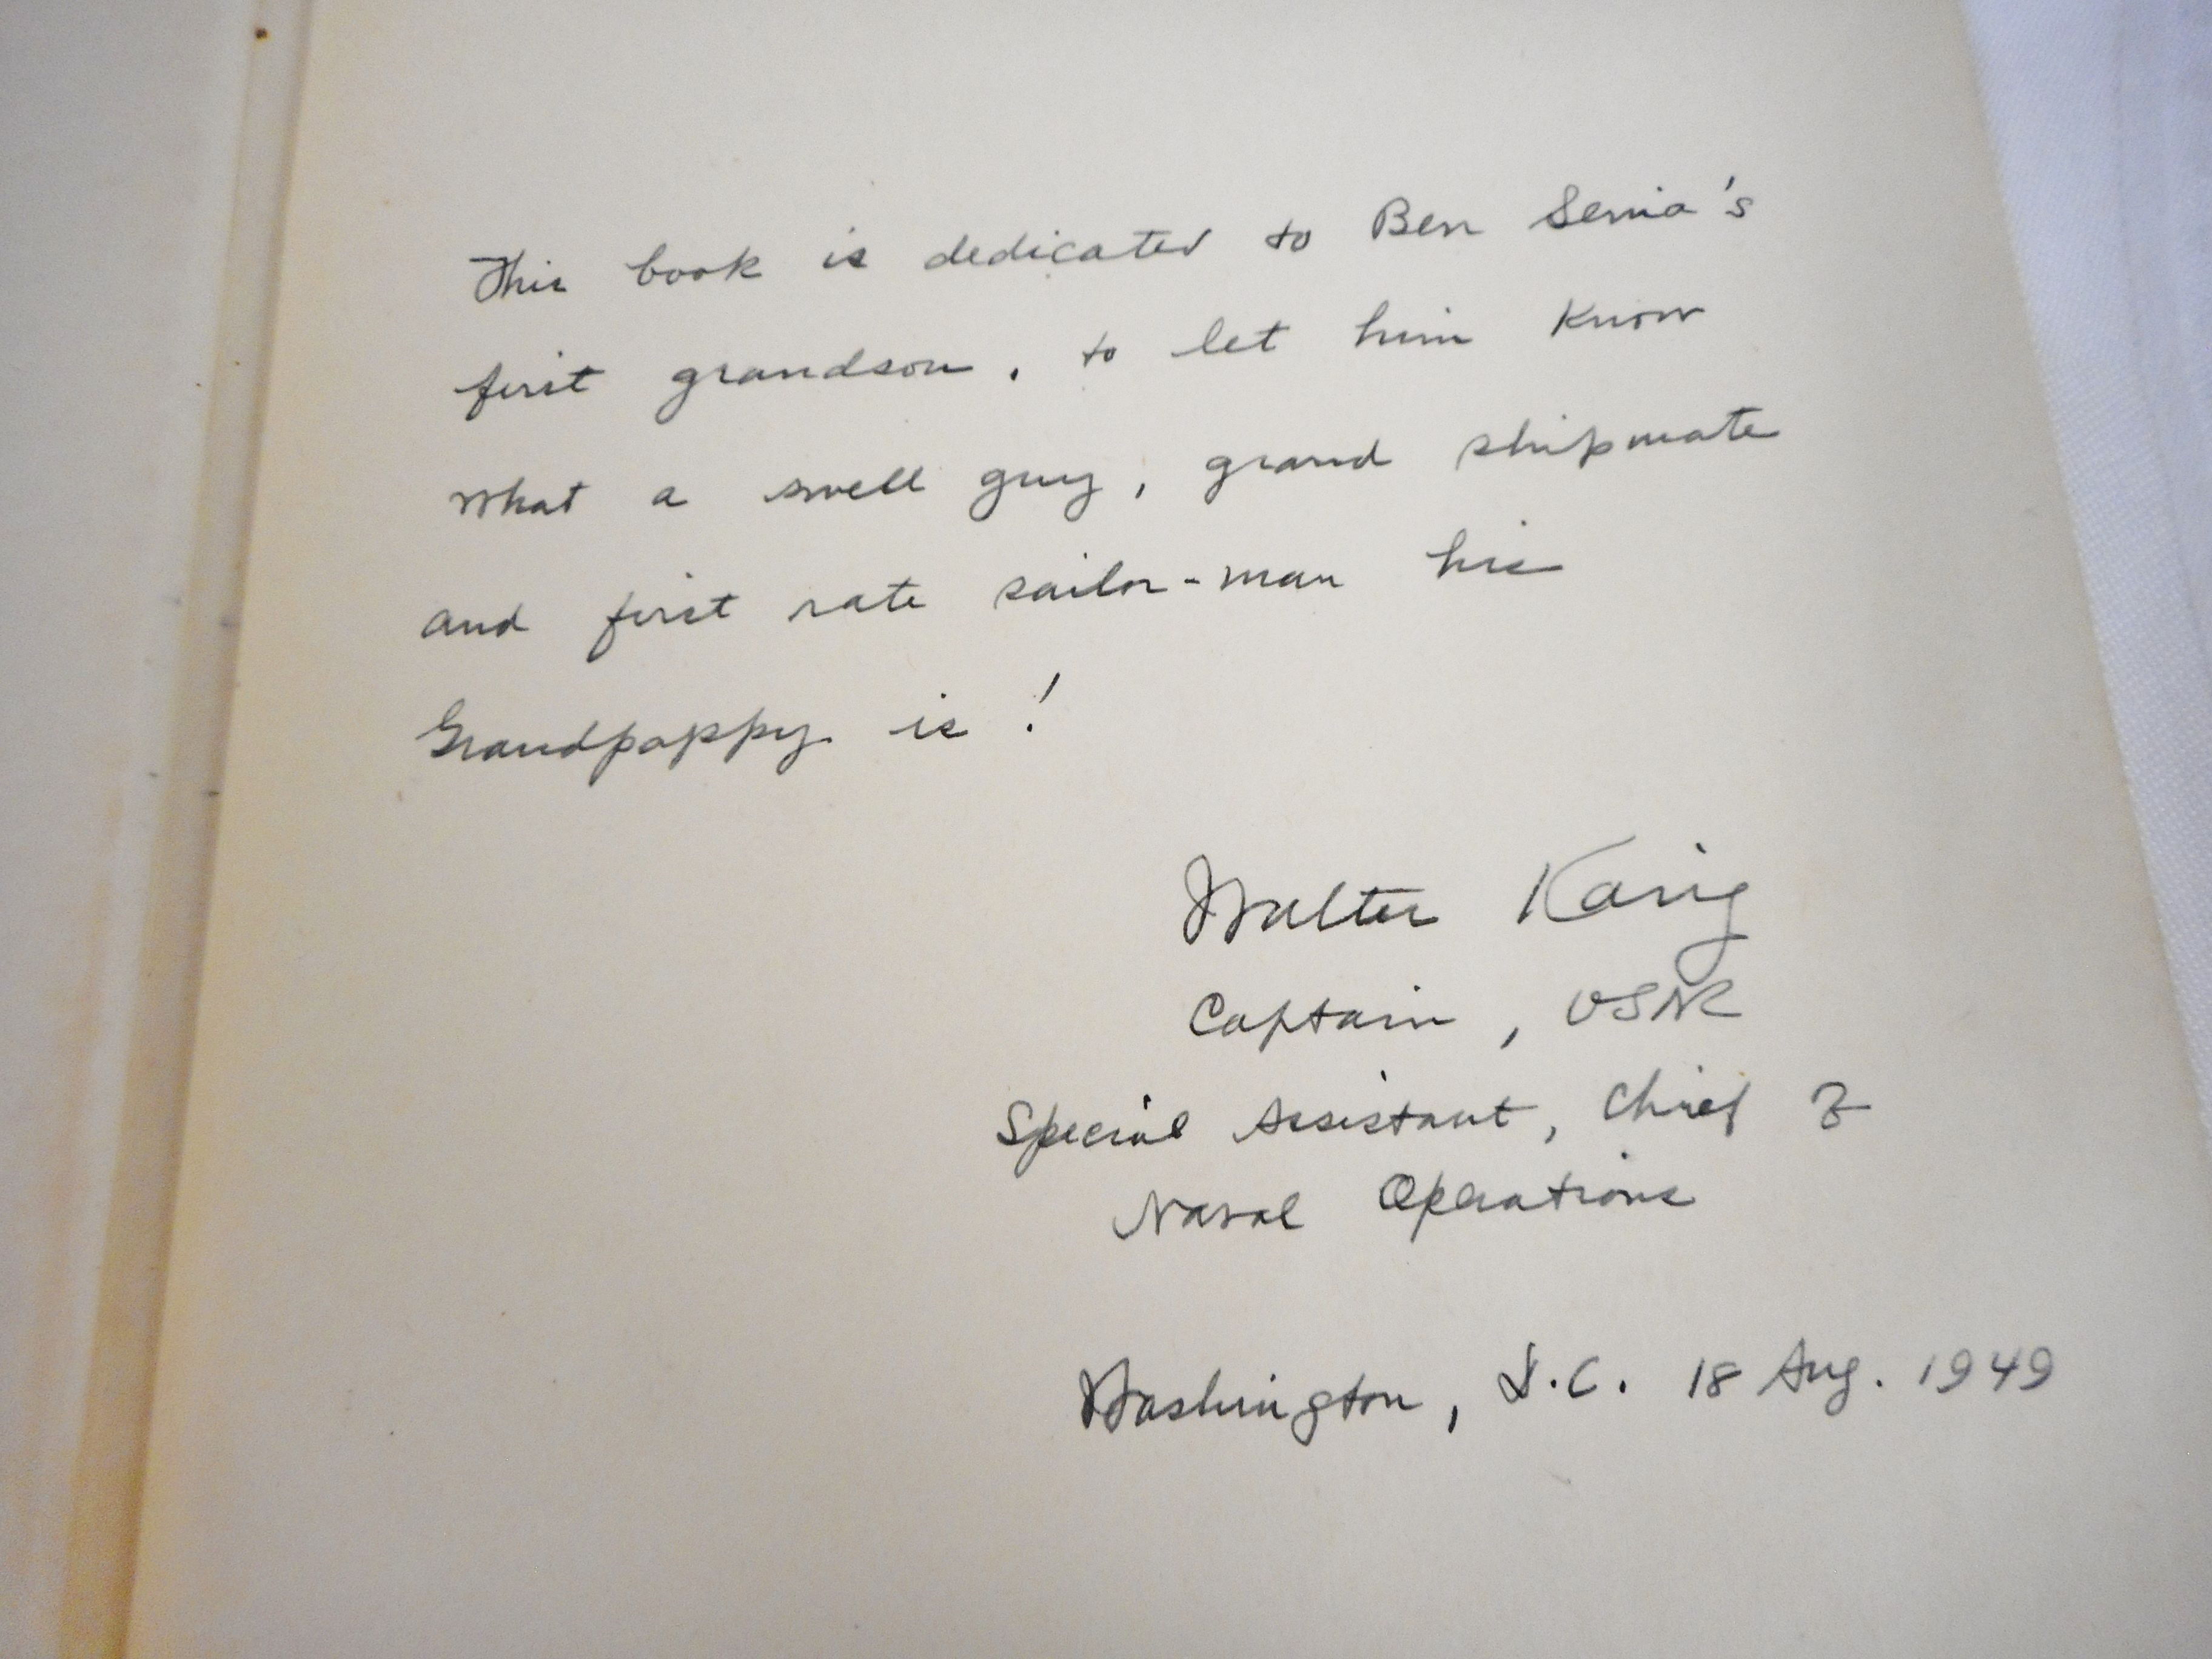 This book is dedicated to Ben Semia's
first grandson, to let him know
what a swell guy, grand shipmate
and first rate sailor-man his
Grandpappy is!
Walter Karig
Captain, USNR
Special Assistant, Chief of
Naval Operations
Washington, D.C. 18 Aug. 1949